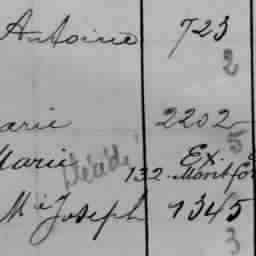 Antoine 723
2
arie 2202
5
Marie Ex.
Décédé 132 Montfo
M ie Joseph 1345
3